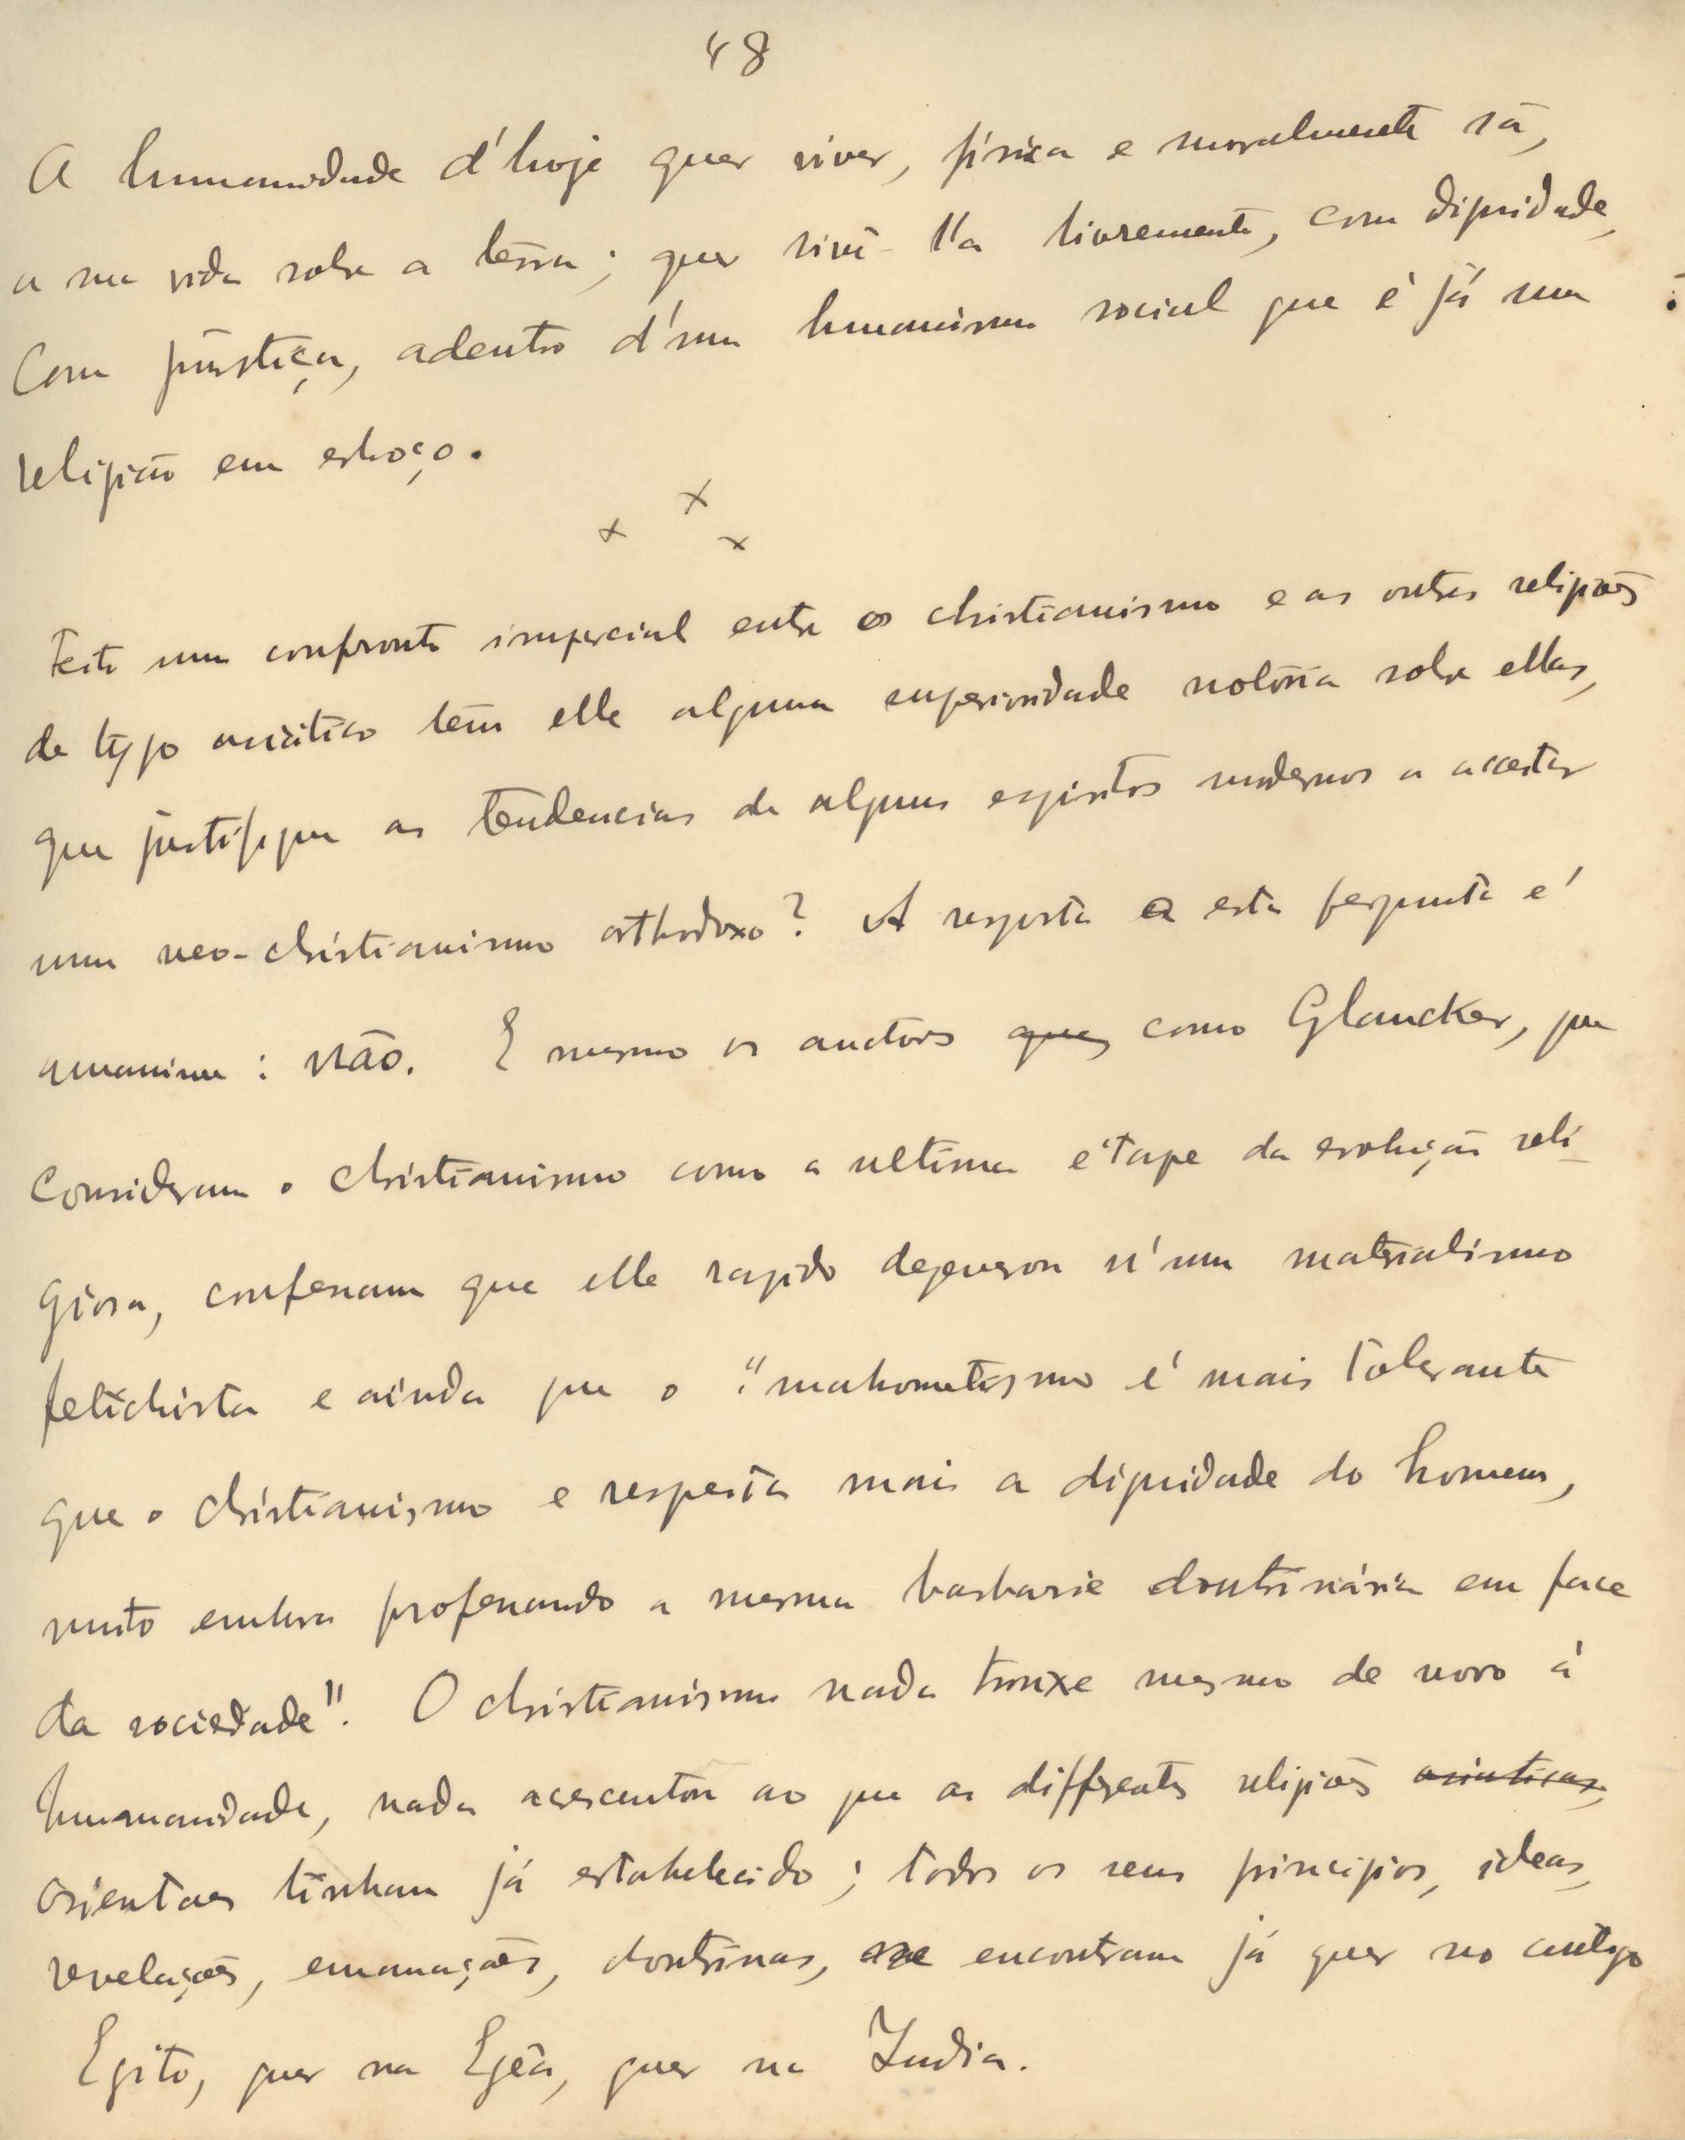 48
A humanidade d'hoje quer viver, física e moralmente sã,
a sua vida sobre a terra; quer vivê-l'a livremente, com dignidade,
Com justiça, adentro d'um humanismo social que é já uma
religião em esboço.
x x x
Feito um confronto imparcial entre o christianismo e as outras religiões
de typo asiático têm elle alguma superioridade notória sobre ellas,
que justifique as tendencias de alguns espiritos modernos a acceitar
num neo-christianismo orthodoxo? A resposta a esta pergunta é
unanime: não. E mesmo os auctores que, como Glaucker, que
Consideram o christianismo como a ultima étape da evolução reli-
giosa, confessam que elle rapido degenerou n'um materialismo
fetichista e ainda que o "mahometismo é mais tolerante
que o christianismo e respeita mais a dignidade do homem,
muito embora professando a mesma barbarie doutrinária em face
da sociedade". O christianismo nada trouxe mesmo de novo á
humanidade, nada acrescentou ao que as differentes religiões asiaticas,
orientaes tinham já estabelecido; todos os seus principios, ideas,
revelações, emanações, doutrinas, se encontram já quer no antigo
Egito, quer na Egêa, quer na India.